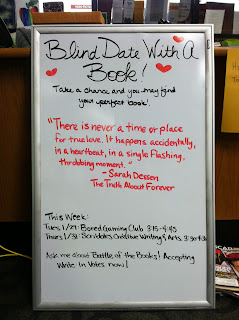 Blind Date With A
Book!
Take a chance and you may find
your perfect book!
"There is never a time or place
for true love. It happens accidentally,
in a heartbeat, in a single flashing,
throbbing moment."
- Sarah Dessen
The Truth About Forever
This Week:
Tues 1/29: Bored Gaming Club 3:15-4:45
Thurs 1/31: Scribbles Creative Writing & Arts 3:30-4:30
Ask me about Battle of the Books! Accepting
Write in Votes now!